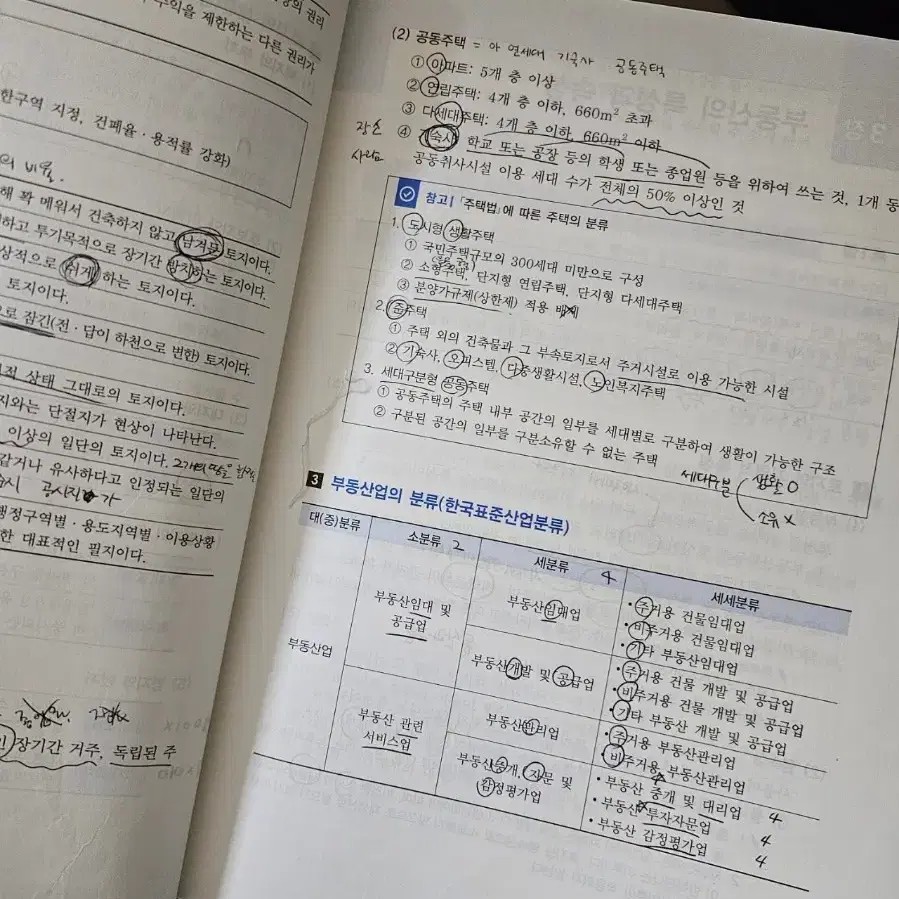 상의 권리
수익을 제한하는 다른 권리가
한구역 지정, 건폐율·용적률 강화)
의 비율.
해 꽉 메워서 건축하지 않고 남겨둔 토지이다.
하고 투기목적으로 장기간 방치하는 토지이다.
상적으로 쉬게 하는 토지이다.
토지이다.
으로 잠긴(전·답이 하천으로 변한) 토지이다.
적 상태 그대로의 토지이다.
지와는 단절지가 현상이 나타난다.
이상의 일단의 토지이다.
같거나 유사하다고 인정되는 일단의
공시지가
행정구역별·용도지역별·이용상황
한 대표적인 필지이다.
인 장기간 거주, 독립된 주
(2) 공동주택 = 아 연세대 기숙사 공동주택
① 아파트: 5개 층 이상
② 연립주택: 4개 층 이하, 660m² 초과
③ 다세대주택: 4개 층 이하, 660m² 이하
장소
④ 기숙사: 학교 또는 공장 등의 학생 또는 종업원 등을 위하여 쓰는 것, 1개 동
사람
공동취사시설 이용 세대 수가 전체의 50% 이상인 것
참고 「주택법」에 따른 주택의 분류
1. 도시형 생활주택
① 국민주택규모의 300세대 미만으로 구성
② 소형주택, 단지형 연립주택, 단지형 다세대주택
③ 분양가규제(상한제) 적용 배제
2. 준주택
① 주택 외의 건축물과 그 부속토지로서 주거시설로 이용 가능한 시설
② 기숙사, 오피스텔, 다중생활시설, 노인복지주택
3. 세대구분형 공동주택
① 공동주택의 주택 내부 공간의 일부를 세대별로 구분하여 생활이 가능한 구조
② 구분된 공간의 일부를 구분소유할 수 없는 주택
세대구분
생활 O
소유 X
3 부동산업의 분류(한국표준산업분류)
대(중)분류
소분류 2
세분류 4
세세분류
부동산업
부동산임대 및
공급업
부동산임대업
• 주거용 건물임대업
• 비주거용 건물임대업
• 기타 부동산임대업
부동산개발 및 공급업
• 주거용 건물 개발 및 공급업
• 비주거용 건물 개발 및 공급업
• 기타 부동산 개발 및 공급업
부동산 관련
서비스업
부동산관리업
• 주거용 부동산관리업
• 비주거용 부동산관리업
부동산중개, 자문 및
감정평가업
• 부동산 중개 및 대리업 4
• 부동산 투자자문업 4
• 부동산 감정평가업 4